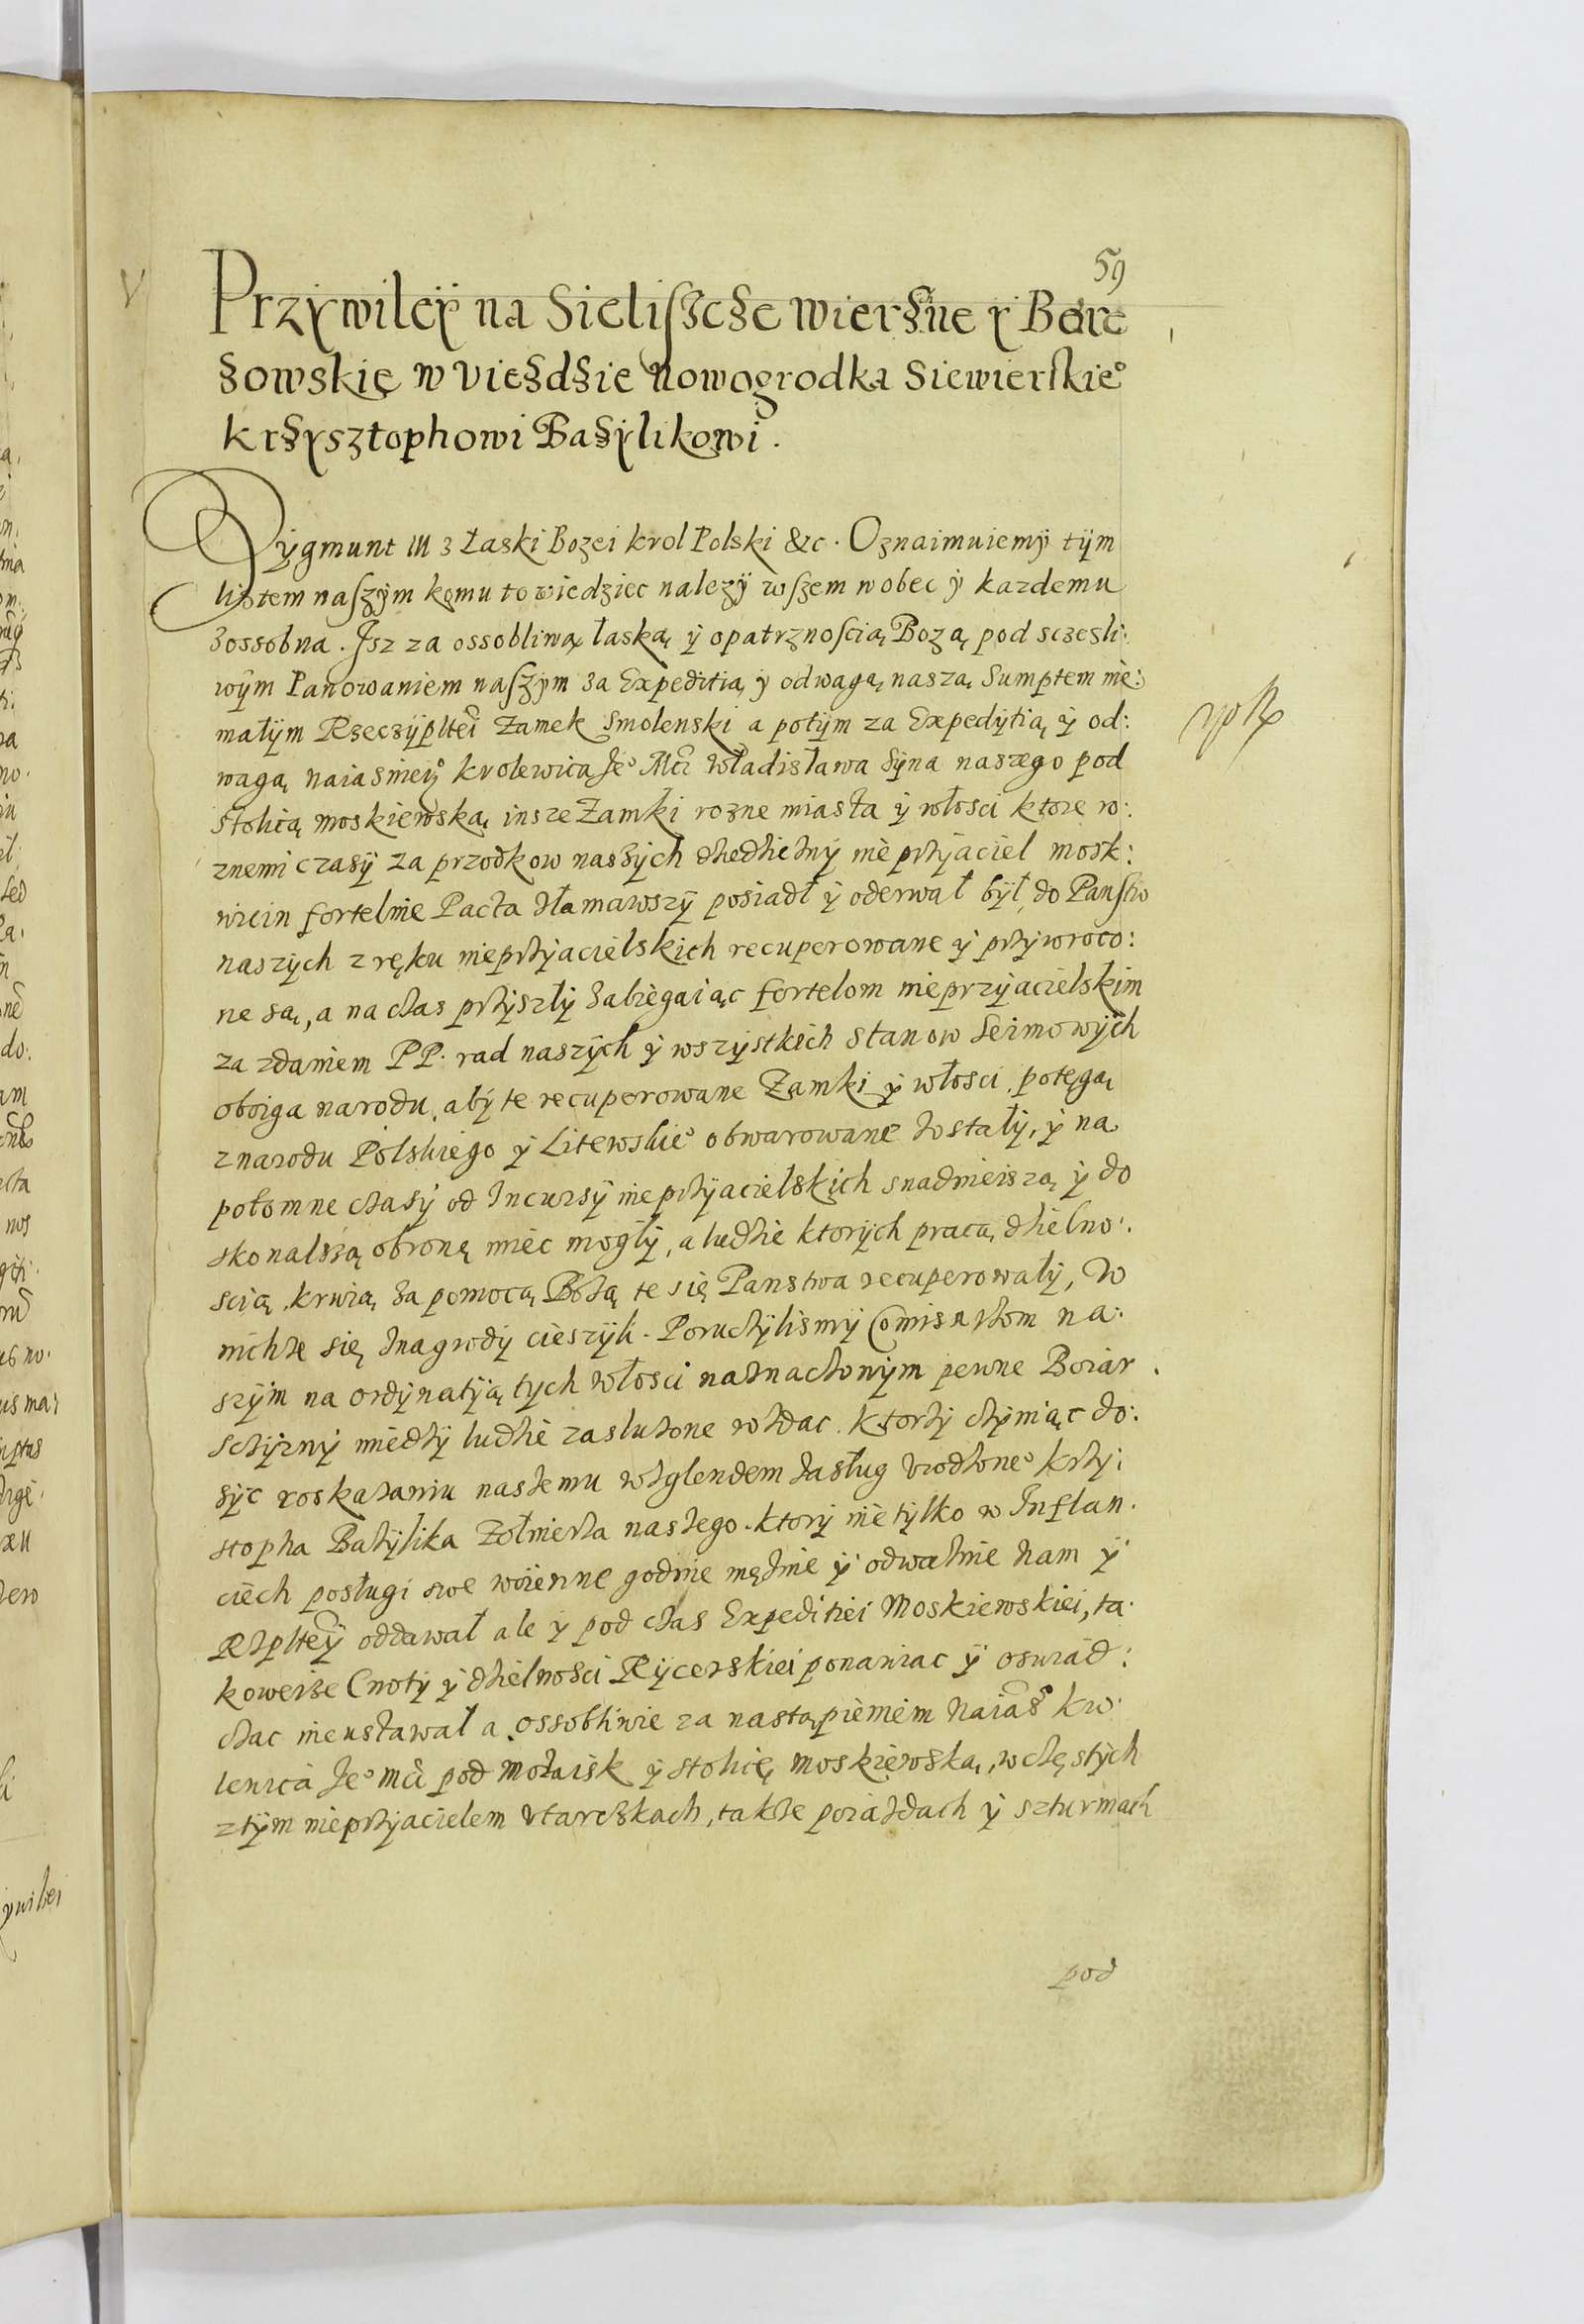 59
Przywileÿ na Sieliszcze Wierzne y Bere
zowskie w Viezdzie Nowogrodka Siewierskie°
krzysztophowi Bazylikowi.
Zygmunt III z Łaski Bozei krol Polski &c. Oznaimuiemy tÿm
listem naszym komu to wiedziec nalezÿ wszem wobec ÿ kazdemu
zossobna. Isz za ossobliwą łaską ÿ opatrznoscią Bozą pod sczesli:
wÿm Panowaniem naszym za Expeditią y odwagą naszą Sumptem nie:
małÿm Rzeczÿpltei Zamek Smolenski a potÿm za Expedÿtią ÿ od:
wagą naiasniei° krolewica Je° Mci Władisława Sÿna naszego pod
stolicą moskiewską insze Zamki rozne miasta ÿ włosci ktore ro:
znemi czasÿ za przodkow naszÿch dziedzicznÿ nieprzÿjaciel mosk:
wicin fortelnie Pacta złamawszÿ posiadł ÿ oderwał bÿł, do Panstw
naszÿch z ręku nieprzÿjacielskich recuperowane ÿ przÿwroco:
ne są, a na czas przÿszłÿ zabiegaiąc fortelom nieprzÿjacielskim
za zdaniem PP. rad naszÿch ÿ wszÿstkich stanow Seimowÿch
oboiga narodu, abÿ te recuperowane Zamki ÿ włosci potęgą
z narodu Polskiego ÿ Litewskie° obwarowane zostałÿ, ÿ na
potomne czasÿ od Incursÿ nieprzÿjacielskich snadnieiszą ÿ do
skonalszą obronę miec mogłÿ, a ludzie ktorÿch pracą dzielno:
scią krwią za pomocą Bozą te się Panstwa recuperowałÿ, w
nichze się znagrodÿ cieszÿli. Poruczÿlismÿ Comisarzom na:
szÿm na ordÿnatÿą tych włosci naznaczonÿm pewne Boiar
sczÿznÿ miedzÿ ludzie zasluzone rozdac. Ktorzÿ czÿniąc do:
sÿc roskazaniu naszemu wzglendem zasług Vrodzone° krzÿ:
stopha Bazÿlika Zołnierza naszego. ktorÿ nie tÿlko w Inflan:
ciech posługi swe woienne godnie męznie ÿ odwaznie Nam ÿ
Rzpltey oddawał ale y pod czas Expeditiei Moskiewskiei, ta:
koweisze Cnotÿ ÿ dzielnosci Rÿcerskiei ponawiac ÿ oswiad:
czac nieustawał a ossobliwie za nastąpieniem Naias° kro:
lewica Je° Mci pod Mozaisk ÿ stolicę moskiewską, w częstÿch
ztÿm nieprzÿjacielem Vtarczkach, takze poiazdach ÿ szturmach
pod